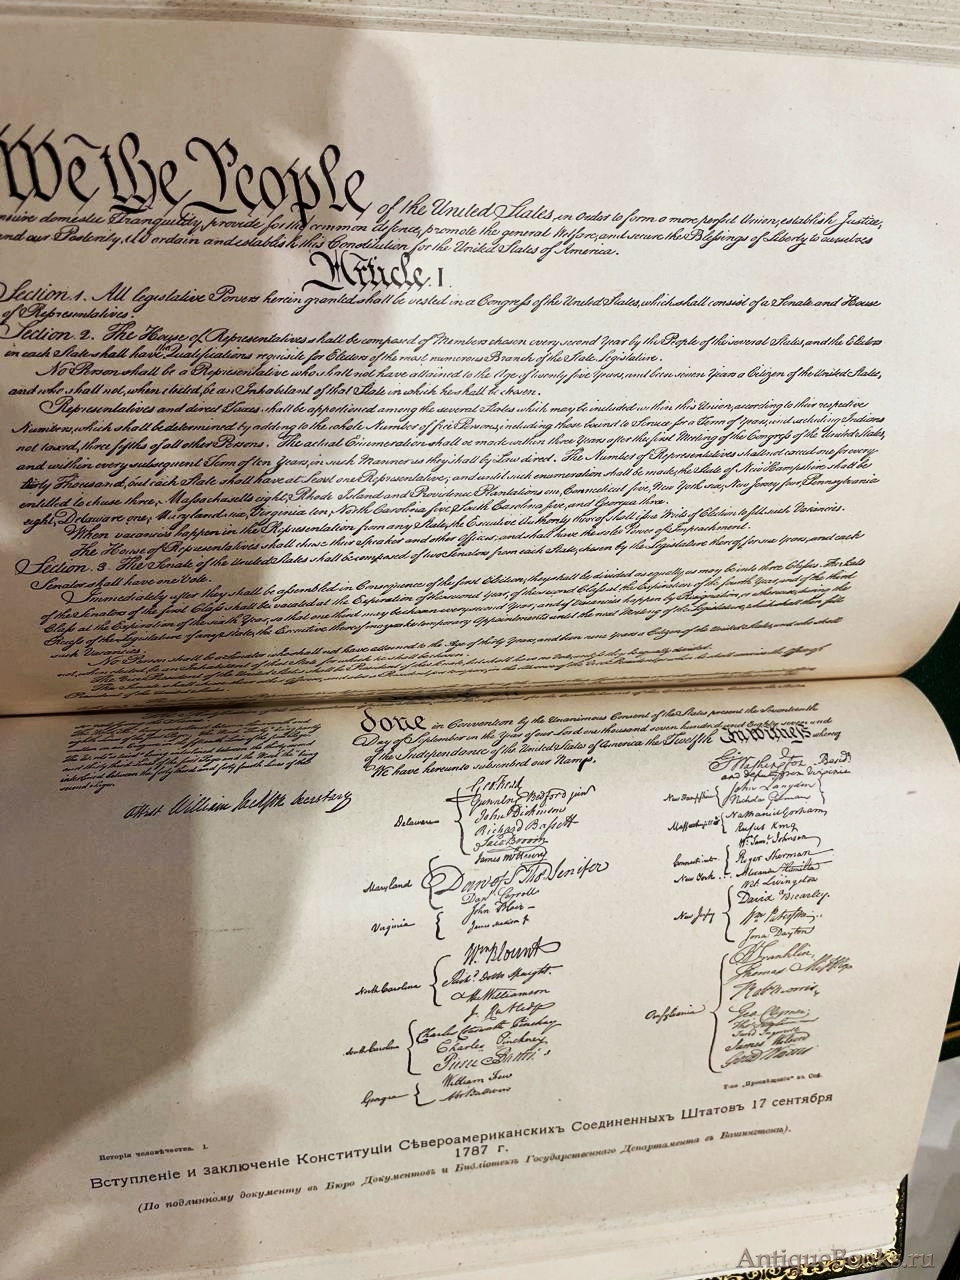 We the People of the United States, in Order to form a more perfect Union, establish Justice,
domestic Tranquility, provide for the common defence, promote the general Welfare, and secure the Blessings of Liberty to ourselves
and our Posterity, do ordain and establish this Constitution for the United States of America.
Article. I.
Section. 1. All legislative Powers herein granted shall be vested in a Congress of the United States, which shall consist of a Senate and House
of Representatives.
Section. 2. The House of Representatives shall be composed of Members chosen every second Year by the People of the several States, and the Electors
in each State shall have the Qualifications requisite for Electors of the most numerous Branch of the State Legislature.
No Person shall be a Representative who shall not have attained to the Age of twenty five Years, and been seven Years a Citizen of the United States,
and who shall not, when elected, be an Inhabitant of that State in which he shall be chosen.
Representatives and direct Taxes shall be apportioned among the several States which may be included within this Union, according to their respective
Numbers, which shall be determined by adding to the whole Number of free Persons, including those bound to Service for a Term of Years, and excluding Indians
not taxed, three fifths of all other Persons. The actual Enumeration shall be made within three Years after the first Meeting of the Congress of the United States,
and within every subsequent Term of ten Years, in such Manner as they shall by Law direct. The Number of Representatives shall not exceed one for every
thirty Thousand, but each State shall have at Least one Representative; and until such enumeration shall be made, the State of New Hampshire shall be
entitled to chuse three, Massachusetts eight, Rhode Island and Providence Plantations one, Connecticut five, New York six, New Jersey four, Pennsylvania
eight, Delaware one, Maryland six, Virginia ten, North Carolina five, South Carolina five, and Georgia three.
When vacancies happen in the Representation from any State, the Executive Authority thereof shall issue Writs of Election to fill such Vacancies.
The House of Representatives shall chuse their Speaker and other Officers; and shall have the sole Power of Impeachment.
Section. 3. The Senate of the United States shall be composed of two Senators from each State, chosen by the Legislature thereof, for six Years; and each
Senator shall have one Vote.
Immediately after they shall be assembled in Consequence of the first Election, they shall be divided as equally as may be into three Classes. The Seats
of the Senators of the first Class shall be vacated at the Expiration of the second Year, of the second Class at the Expiration of the fourth Year, and of the third
Class at the Expiration of the sixth Year, so that one third may be chosen every second Year; and if Vacancies happen by Resignation, or otherwise, during the
Recess of the Legislature of any State, the Executive thereof may make temporary Appointments until the next Meeting of the Legislature, which shall then fill
such Vacancies.
No Person shall be a Senator who shall not have attained to the Age of thirty Years, and been nine Years a Citizen of the United States, and who shall
done in Convention by the Unanimous Consent of the States present the Seventeenth
Day of September in the Year of our Lord one thousand seven hundred and Eighty seven and
of the Independance of the United States of America the Twelfth In Witness whereof
We have hereunto subscribed our Names,
Attest William Jackson Secretary
Go. Washington Presidt.
and deputy from Virginia
New Hampshire
John Langdon
Nicholas Gilman
Massachusetts
Nathaniel Gorham
Rufus King
Connecticut
Wm. Saml. Johnson
Roger Sherman
New York
Alexander Hamilton
New Jersey
Wil. Livingston
David Brearley.
Wm. Paterson.
Jona. Dayton
Pensylvania
B Franklin
Thomas Mifflin
Robt Morris
Geo. Clymer
James Wilson
Gouv Morris
Delaware
Geo. Read
Gunning Bedford jun
John Dickinson
Richard Bassett
Jaco. Broom
Maryland
James McHenry
Dan of St Thos. Jenifer
Danl Carroll
Virginia
John Blair
James Madison Jr
North Carolina
Wm. Blount
Richd. Dobbs Spaight.
Hu Williamson
South Carolina
J. Rutledge
Charles Cotesworth Pinckney
Charles Pinckney
Pierce Butler.
Georgia
William Few
Abr Baldwin
Т-во „Просвѣщеніе" въ Спб.
Исторія человѣчества. I.
Вступленіе и заключеніе Конституціи Сѣвероамериканскихъ Соединенныхъ Штатовъ 17 сентября
1787 г.
(По подлинному документу въ Бюро Документовъ и Библіотекъ Государственнаго Департамента въ Вашингтонѣ).
AntiqueBooks.ru